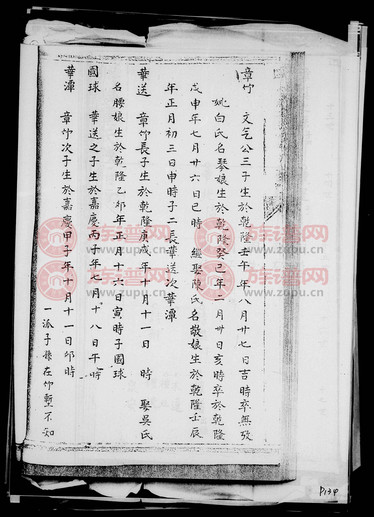 章竹 文乞公三子生於乾隆壬午年八月廿七日吉時卒無攷
妣白氏名琴娘生於乾隆癸巳年二月廿日亥時卒於乾隆
戊申年七月廿六日巳時 繼娶陳氏名敬娘生於乾隆壬辰
年正月初三日申時子二長華送次華潭
華送 章竹長子生於乾隆庚戌年十月十一日 時 娶吳氏
名腰娘生於乾隆乙卯年正月十六日寅時子國球
國球 華送之子生於嘉慶丙子年七月十八日午時
華潭 章竹次子生於嘉慶甲子年十月十一日卯時
一派子孫在竹塹不知
族譜网
www.zgpu.cn
族譜网
www.zgpu.cn
族譜网
www.zgpu.cn
族譜网
www.zgpu.cn